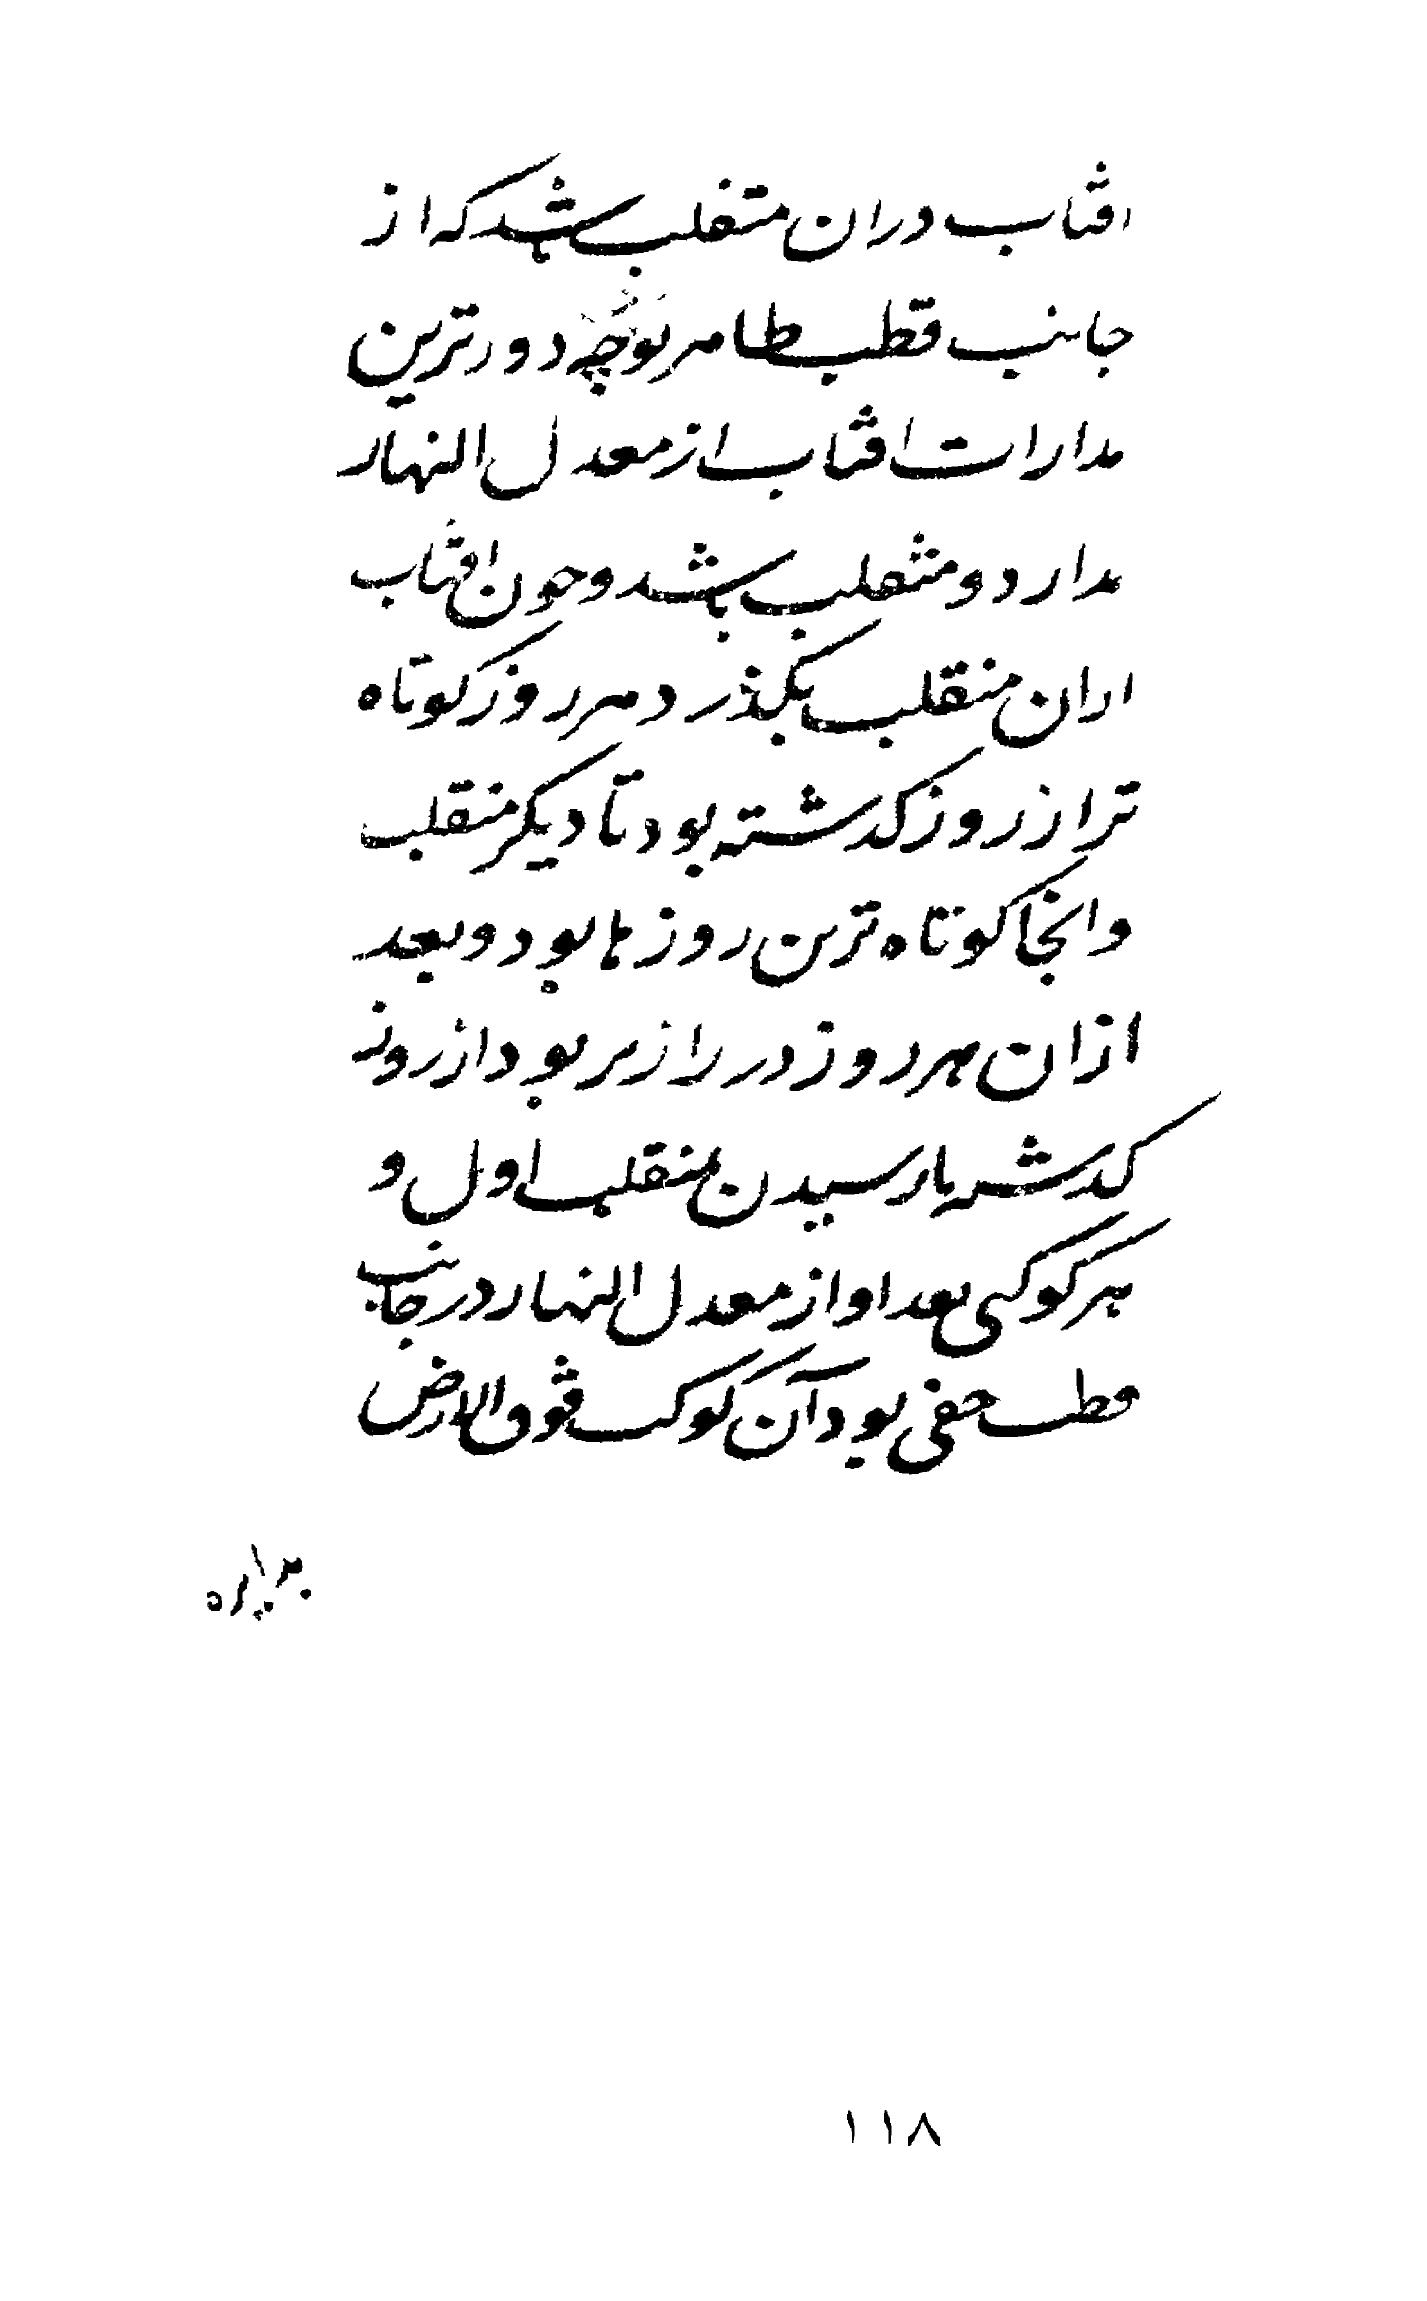 افتاب دران متقلب باشد که از
جانب قطب ظاهر بود چه دورترین
مدارات افتاب از معدل النهار
مدار دو منقلب باشد و چون افتاب
ازان منقلب بگذرد هر روز کوتاه
تر از روز کدشته بود تا دیکر منقلب
وانجا کوتاه ترین روزها بود و بعد
ازان هر روز دراز تر بود از روز
کدشته تا رسیدن بمنقلب اول و
هر کوکبی بعد او از معدل النهار در جانب
قطب خفی بود آن کوکب فوق الارض
۱۱۸